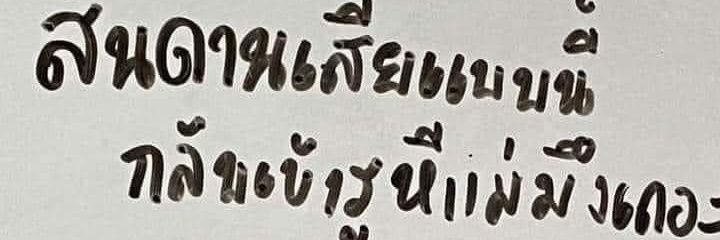 สนดานเสียแบบนี้
กลับเข้ารูหีแม่มึงเถอะ